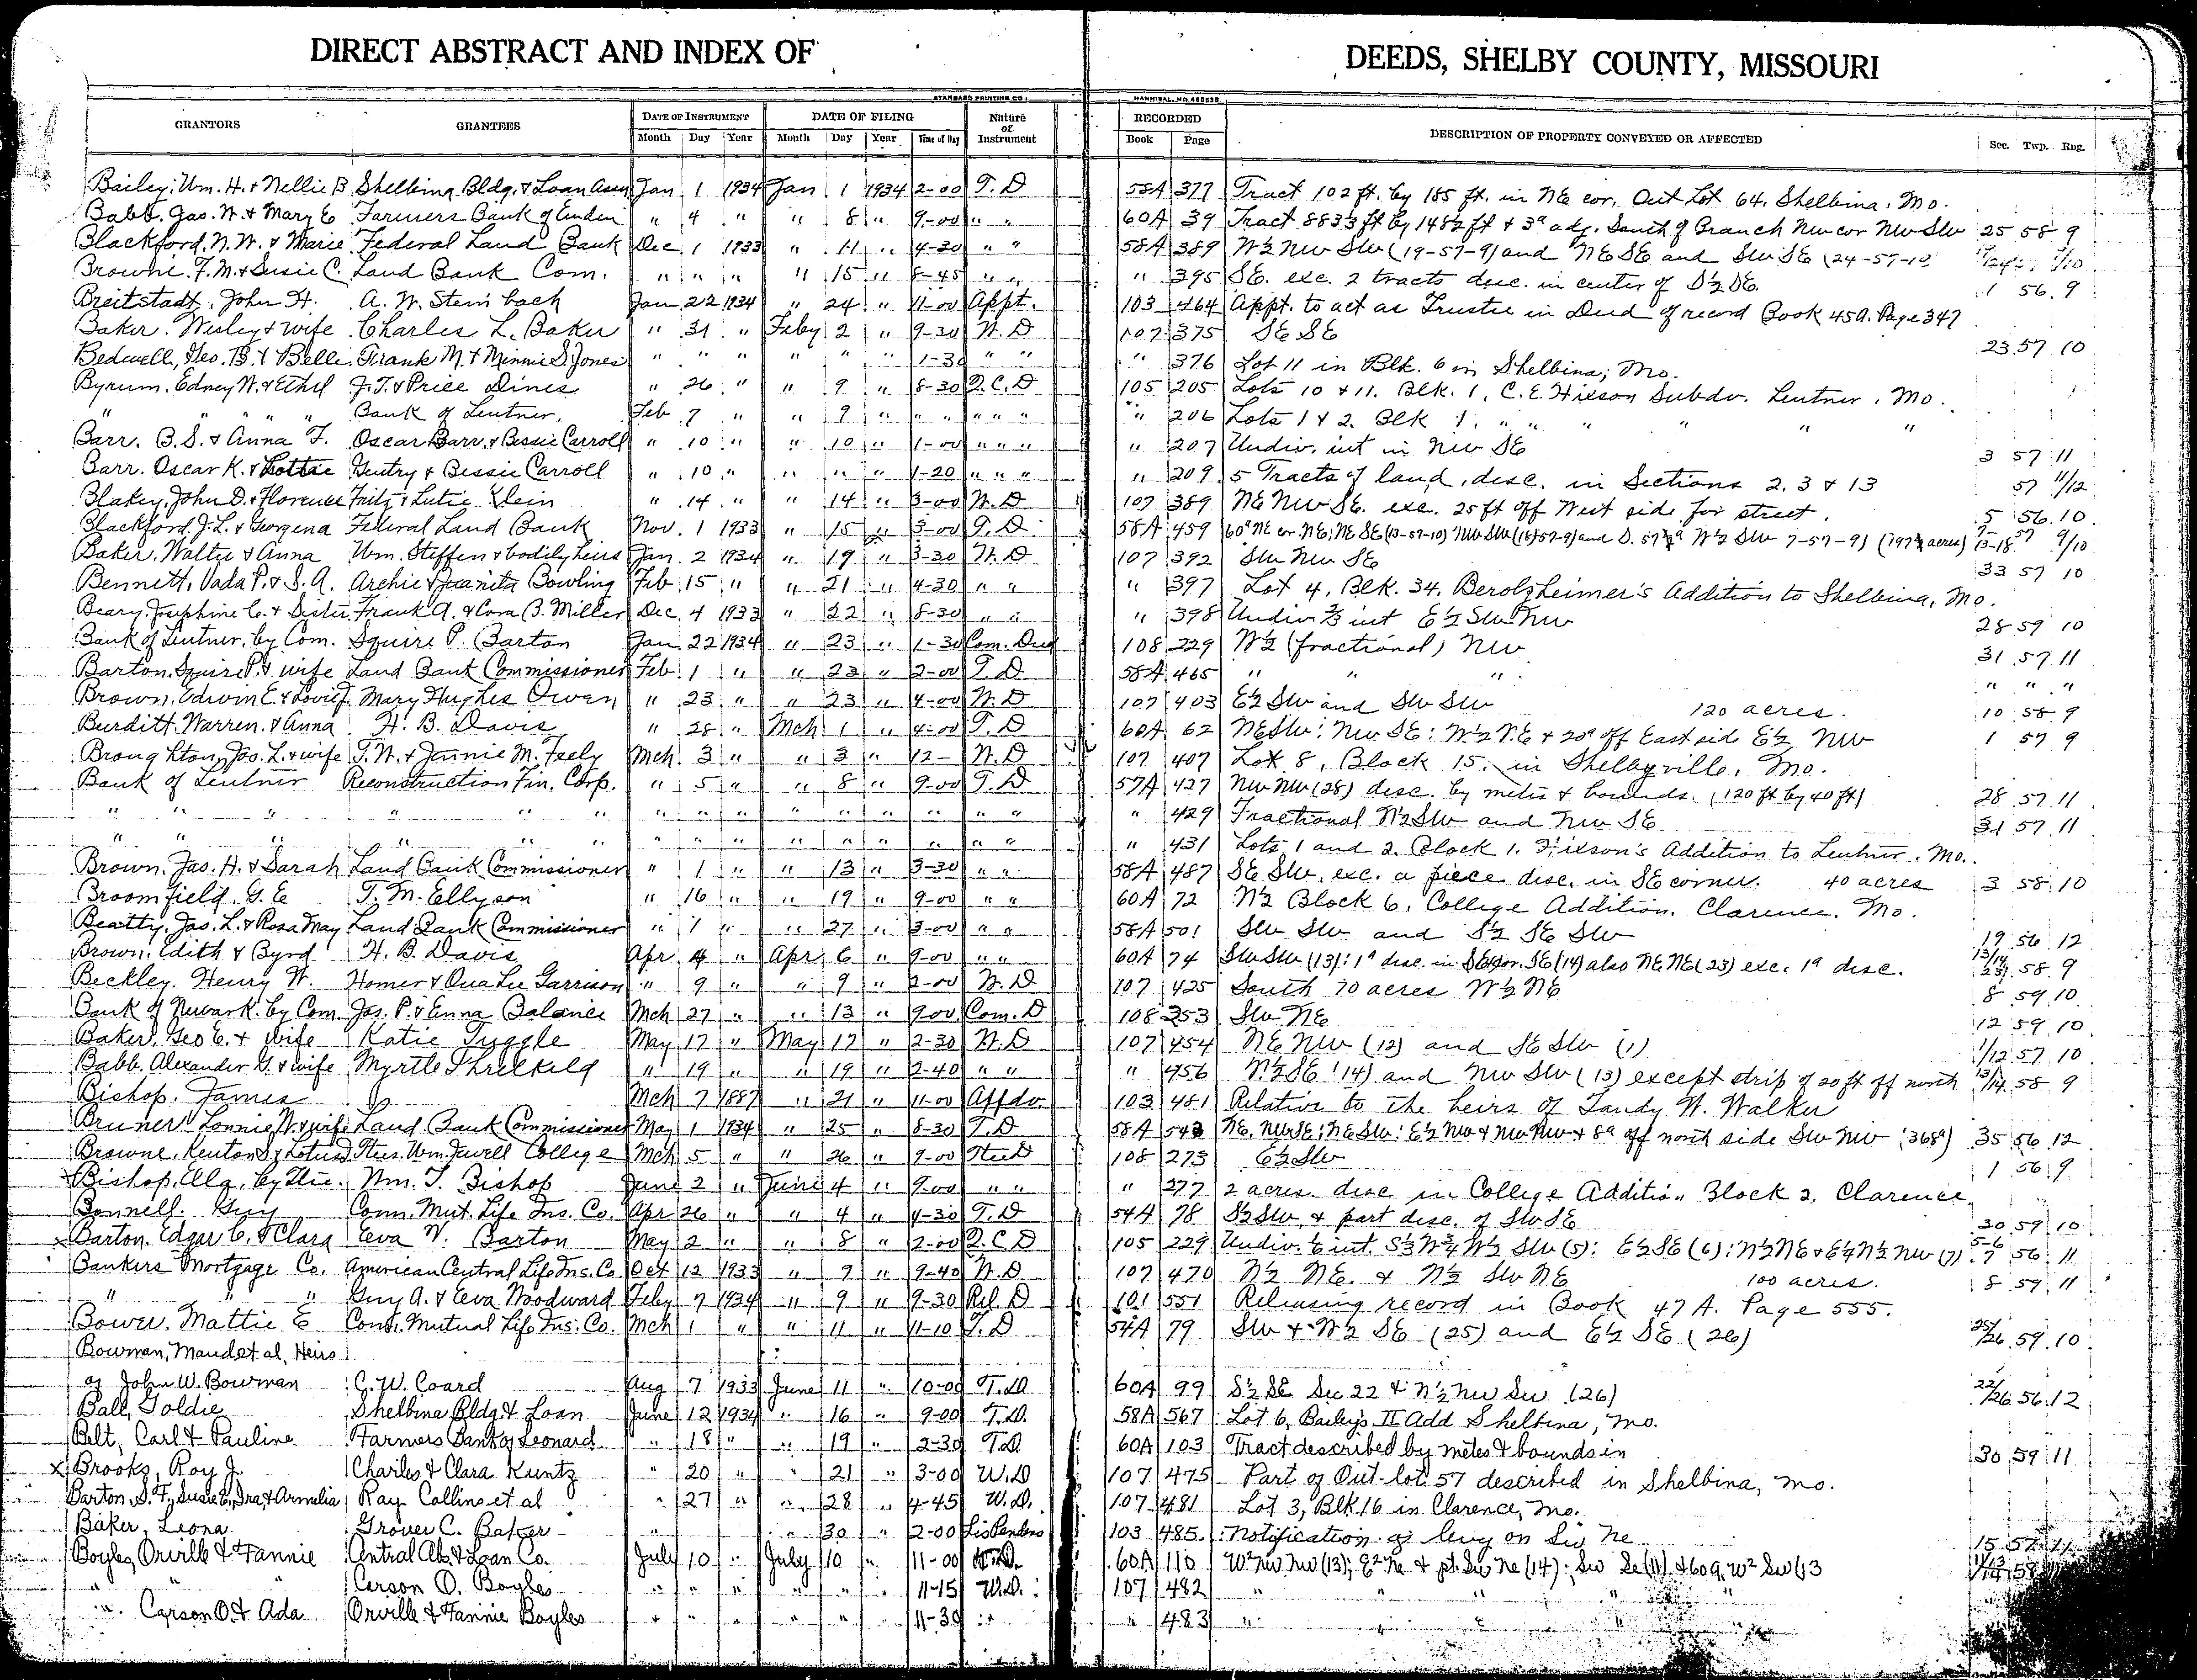 DIRECT ABSTRACT AND INDEX OF DEEDS, SHELBY COUNTY, MISSOURI
STANDARD PRINTING CO., HANNIBAL, MO.
GRANTORS GRANTEES DATE OF INSTRUMENT DATE OF FILING Nature of Instrument RECORDED DESCRIPTION OF PROPERTY CONVEYED OR AFFECTED Sec. Twp. Rng.
Month Day Year Month Day Year Time of Day Book Page
Bailey, Wm. H. & Nellie B Shelbina Bldg. & Loan Assn Jan 1 1934 Jan 1 1934 2-00 T. D 58A 377 Tract 102 ft. by 185 ft. in NE cor. Out Lot 64, Shelbina, Mo.
Babb, Jas. W. & Mary E Farmers Bank of Emden " 4 " " 8 " 9-00 " " 60A 39 Tract 883½ ft by 148½ ft & 3ª adj. South of Branch NW cor NW SW 25 58 9
Blackford, N. W. & Marie Federal Land Bank Dec 1 1933 " 11 " 4-30 " " 58A 389 W½ NW SW (19-57-9) and NE SE and SW SE (24-57-10
Browne, F. M. & Susie C. Land Bank Com. " " " " 15 " 8-45 " " " 395 SE. exc. 2 tracts desc. in center of S½ SE 1 56 9
Breitstadt, John H. A. W. Steinbach Jan 22 1934 " 24 " 11-00 Appt. 103 464 Appt. to act as Trustee in Deed of record Book 45A. Page 347
Baker, Wesley & wife Charles L. Baker " 31 " Feby 2 " 9-30 W. D 107 375 SE SE 23 57 10
Bedwell, Geo. B. & Belle Frank M. & Minnie S Jones " " " " " " 1-30 " " " 376 Lot 11 in Blk. 6 in Shelbina, Mo.
Byrum, Edney W. & Ethel J. T. & Price Dines " 26 " " 9 " 8-30 Q. C. D 105 205 Lots 10 & 11. Blk. 1, C. E. Hixson Subdv. Lentner, Mo.
" " " " " Bank of Lentner, Feb 7 " " 9 " " " " " " " 206 Lots 1 & 2. Blk 1. " " " " "
Barr, B. S. & Anna F. Oscar Barr & Bessie Carroll " 10 " " 10 " 1-00 " " " " 207 Undiv. int in NW SE 3 57 11
Barr, Oscar K. & Lottie Gentry & Bessie Carroll " 10 " " " " 1-20 " " " " 209 5 Tracts of land, desc. in Sections 2, 3 & 13 57 11/12
Blakey, John D. & Florence Fritz & Lutie Klein " 14 " " 14 " 3-00 W. D 107 389 NE NW SE. exc. 25 ft off West side for street. 5 56 10
Blackford, J. L. & Georgena Federal Land Bank Nov. 1 1933 " 15 " 3-00 T. D 58A 459 60ª NE cor. NE; NE SE (13-57-10) NW SW (18-57-9) and S. W½ SW 7-57-9)
Baker, Walter & Anna Wm. Steffen & bodily heirs Jan. 2 1934 " 19 " 3-30 W. D 107 392 SW NW SE 33 57 10
Bennett, Vada P. & S. A. Archie & Juanita Bowling Feb 15 " " 21 " 4-30 " " " 397 Lot 4, Blk. 34, Berolzheimer's Addition to Shelbina, Mo.
Beary, Josephine C. & Sister Frank A. & Cora B. Miller Dec. 4 1933 " 22 " 8-30 " " " 398 Undiv ⅔ int E½ SW NW 28 59 10
Bank of Lentner, by Com. Squire P. Barton Jan 22 1934 " 23 " 1-30 Com. Deed 108 229 W½ (fractional) NW 31 57 11
Barton, Squire P. & wife Land Bank Commissioner Feb 1 " " 23 " 2-00 T. D 58A 465 " " " " "
Brown, Edwin E. & Lovie F. Mary Hughes Owen " 23 " " 23 " 4-00 W. D 107 403 E½ SW and SW SW 120 acres. 10 58 9
Burditt, Warren & Anna H. B. Davis " 28 " Mch 1 " 4-00 T. D 60A 62 NE SW; NW SE; W½ NE & 20ª off East side E½ NW 1 57 9
Broughton, Jas. L. & wife T. W. & Jennie M. Feely Mch 3 " " 3 " 12- W. D 107 407 Lot 8, Block 15, in Shelbyville, Mo.
Bank of Lentner Reconstruction Fin. Corp. " 5 " " 8 " 9-00 T. D 57A 427 NW NW (28) desc. by metes & bounds. (120 ft by 40 ft) 28 57 11
" " " " " " " " " " " " " " " " 429 Fractional N½ SW and NW SE 31 57 11
" " " " " " " " " " " " " " " " 431 Lots 1 and 2. Block 1. Hixson's Addition to Lentner, Mo.
Brown, Jas. H. & Sarah Land Bank Commissioner " 1 " " 13 " 3-30 " " 58A 487 SE SW. exc. a piece desc. in SE corner. 40 acres 3 58 10
Broomfield, G. E T. M. Ellyson " 16 " " 19 " 9-00 " " 60A 72 N½ Block 6, College Addition, Clarence, Mo.
Beatty, Jas. L. & Rosa May Land Bank Commissioner " 1 " " 27 " 3-00 " " 58A 501 SW SW and S½ SE SW 19 56 12
Brown, Edith & Byrd H. B. Davis Apr. 4 " Apr 6 " 9-00 " " 60A 74 SW SW (13); 1ª desc. in SE cor. SE (14) also NE NE (23) exc. 1ª desc. 13/14 23 58 9
Beckley, Henry W. Homer & Ona Lee Garrison " 9 " " 9 " 2-00 W. D 107 425 South 70 acres W½ NE 8 59 10
Bank of Newark, by Com. Jas. P. & Emma Balance Mch 27 " " 13 " 9-00 Com. D 108 253 SW NE 12 59 10
Baker, Geo E. & wife Katie Tuggle May 17 " May 17 " 2-30 W. D 107 454 NE NW (12) and SE SW (1) 1/12 57 10
Babb, Alexander G. & wife Myrtle Threlkeld " 19 " " 19 " 2-40 " " " 456 N½ SE (14) and NW SW (13) except strip of 20 ft off north 13/14 58 9
Bishop, James Mch 7 1887 " 21 " 11-00 Affdv. 103 481 Relative to the heirs of Tandy W. Walker
Bruner, Lonnie W. & wife Land Bank Commissioner May 1 1934 " 25 " 8-30 T. D 58A 543 NE, NW SE; NE SW; E½ NW & NW NW & 8ª off north side SW NW (368ª) 35 56 12
Browne, Kenton S. & Lotus Wm Jewell College Mch 5 " " 26 " 9-00 108 273 E½ SW 1 56 9
Bishop, Wm. T. Bishop June 2 " June 4 " 9-00 " " " 277 2 acres. desc in College Addition Block 2. Clarence
Bonnell, Guy Conn. Mut. Life Ins. Co. Apr 26 " " 4 " 4-30 T. D 54A 78 S½ SW & part desc. of SW SE 30 59 10
x Barton, Edgar C. & Clara Eva V. Barton May 2 " " 8 " 2-00 Q. C D 105 229 Undiv. int. W½ SW (5): E½ SE (6): N½ NE & NW (7) 5-6 7 56 11
Bankers Mortgage Co. American Central Life Ins. Co Oct 12 1933 " 9 " 9-40 W. D 107 470 N½ NE. & N½ SW NE 100 acres. 8 59 11
" " " Guy A. & Eva Woodward Feby 7 1934 " 9 " 9-30 Rel. D 101 551 Releasing record in Book 47 A. Page 555.
Bower, Mattie E Conn. Mutual Life Ins. Co. Mch 1 " " 11 " 11-10 T. D 54A 79 SW & W½ SE (25) and E½ SE (26) 25/26 59 10
Bowman, Maud et al, Heirs
of John W. Bowman C. W. Coard Aug 7 1933 June 11 " 10-00 T. D. 60A 99 S½ SE Sec 22 & N½ NW SW (26) 22/26 56 12
Ball, Goldie Shelbina Bldg. & Loan June 12 1934 " 16 " 9-00 T. D. 58A 567 Lot 6, Bailey's II Add Shelbina, Mo.
Belt, Carl & Pauline Farmers Bank of Leonard " 18 " " 19 " 2-30 T. D. 60A 103 Tract described by metes & bounds in 30 59 11
x Brooks, Roy J. Charles & Clara Kuntz " 20 " " 21 " 3-00 W. D 107 475 Part of Out-lot 57 described in Shelbina, Mo.
Barton, S. F., Susie E., Ira & Armelia Ray Collins et al " 27 " " 28 " 4-45 W. D. 107 481 Lot 3, Blk 16 in Clarence, Mo.
Baker, Leona Grover C. Baker " " " 30 " 2-00 Lis Pendens 103 485 Notification of levy on SW NE 15 57 11
Boyles, Orville & Fannie Central Abs. & Loan Co. July 10 " July 10 " 11-00 60A 110 W² NW NW (13); E² NE & pt. SW NE (14); SW SE (11) & 60a W² SW (13
" " " Carson O. Boyles " " " " " " 11-15 W. D. 107 482 " " " "
" Carson O. & Ada Orville & Fannie Boyles " " " " " " 11-30 " " 483 " " " "